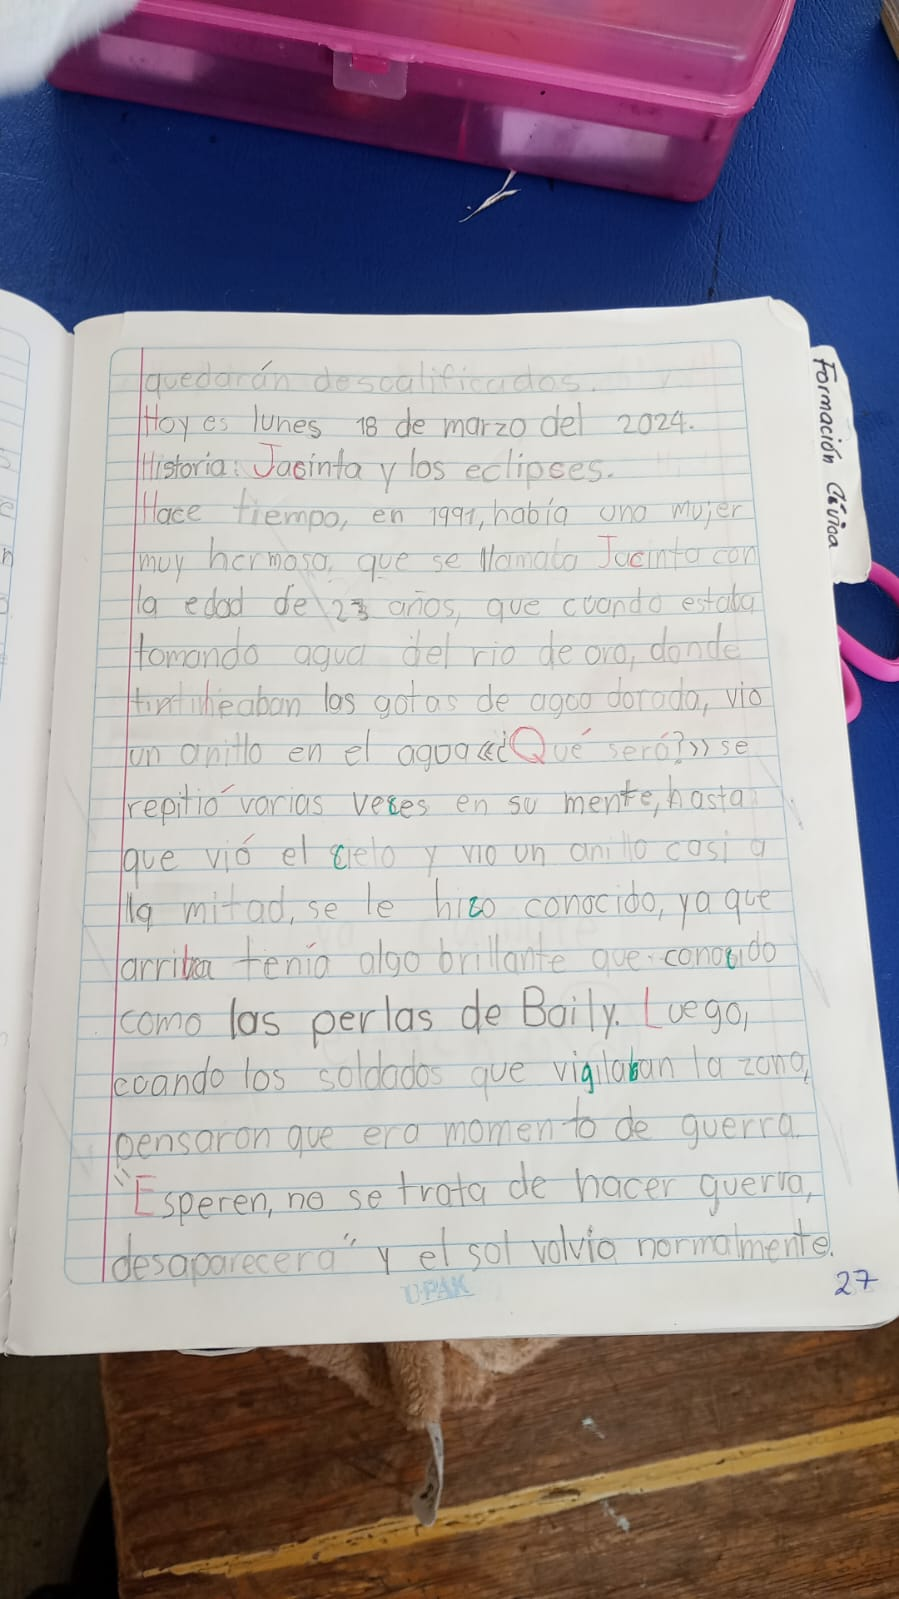 quedarán descalificados.
Hoy es lunes 18 de marzo del 2024.
Historia: Jacinta y los eclipses.
Hace tiempo, en 1991, había una mujer
muy hermosa, que se llamaba Jacinta con
la edad de 23 años, que cuando estaba
tomando agua del rio de oro, donde
tintineaban las gotas de agua dorada, vio
un anillo en el agua «¿Qué será?» se
repitió varias veces en su mente, hasta
que vió el cielo y vio un anillo casi a
la mitad, se le hizo conocido, ya que
arriba tenía algo brillante que conocido
como las perlas de Baily. Luego,
cuando los soldados que vigilaban la zona,
pensaron que era momento de guerra.
"Esperen, no se trata de hacer guerra,
desaparecerá" y el sol volvio normalmente.
27
UPAK
Formación Cívica